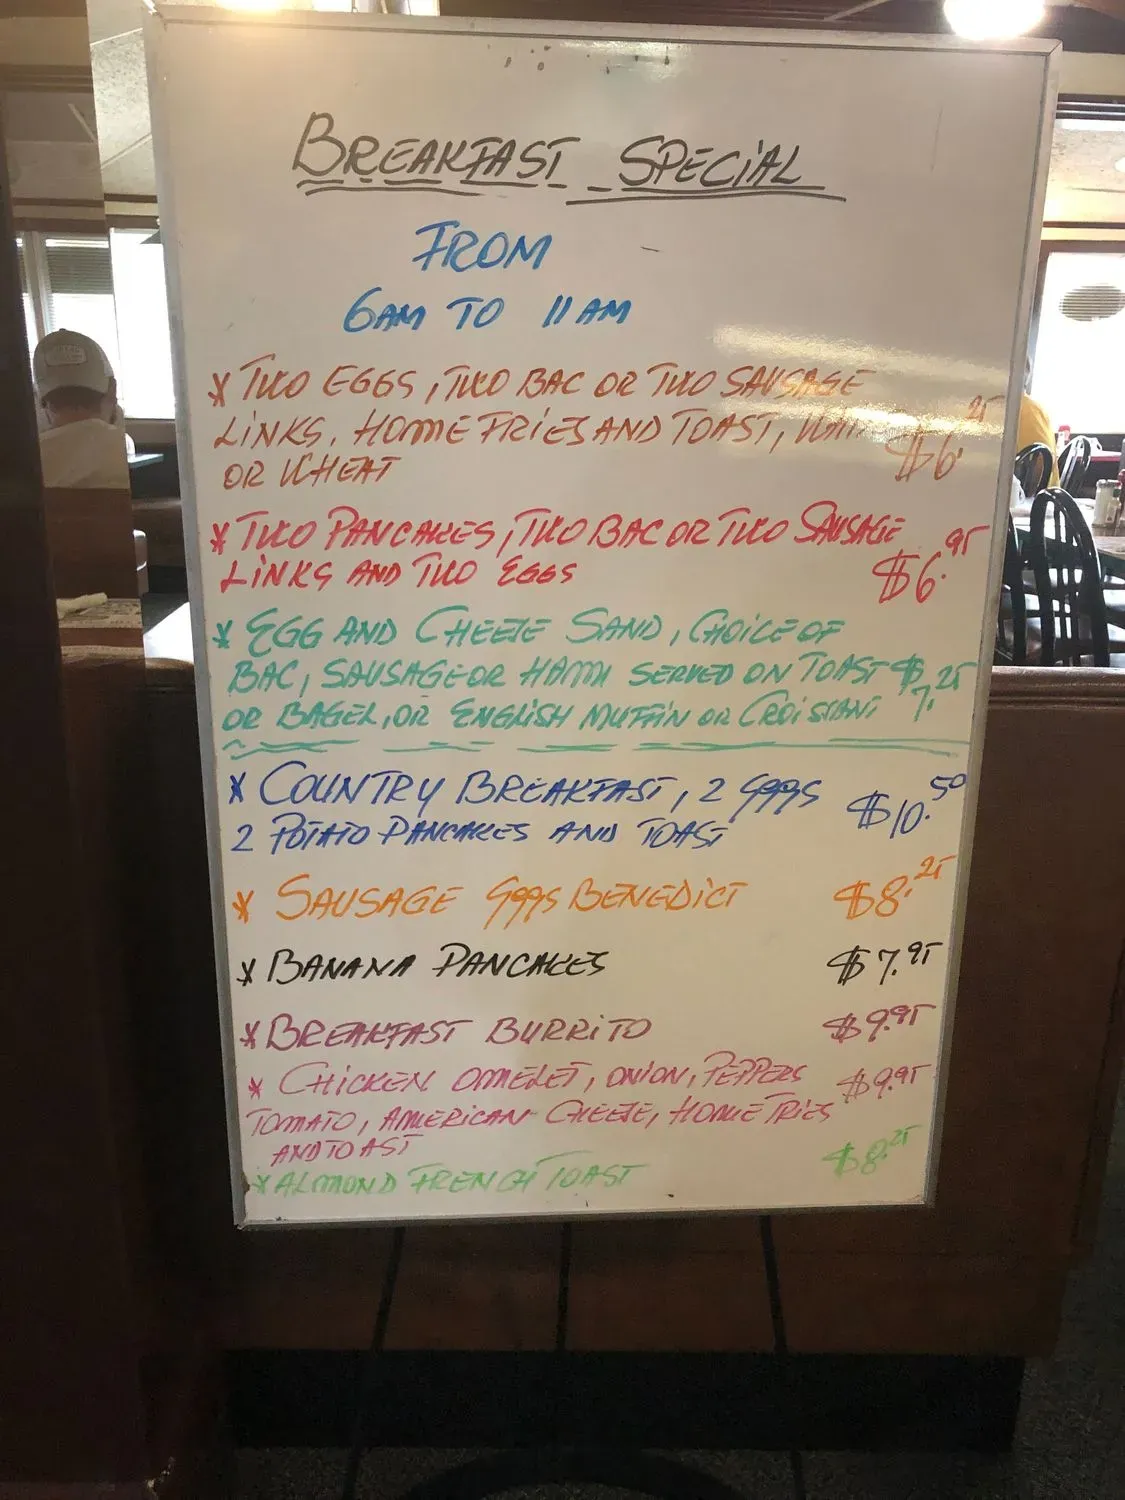 BREAKFAST SPECIAL
FROM
6AM TO 11AM
* TWO EGGS, TWO BAC OR TWO SAUSAGE
LINKS, HOME FRIES AND TOAST, $6.25
OR WHEAT
* TWO PANCAKES, TWO BAC OR TWO SAUSAGE
LINKS AND TWO EGGS $6.95
* EGG AND CHEESE SAND, CHOICE OF
BAC, SAUSAGE OR HAM SERVED ON TOAST $7.25
OR BAGEL, OR ENGLISH MUFFIN OR CROISSANT
* COUNTRY BREAKFAST, 2 EGGS $10.50
2 POTATO PANCAKES AND TOAST
* SAUSAGE EGGS BENEDICT $8.25
* BANANA PANCAKES $7.95
* BREAKFAST BURRITO $9.95
* CHICKEN OMELET, ONION, PEPPERS $9.95
TOMATO, AMERICAN CHEESE, HOME FRIES
AND TOAST
* ALMOND FRENCH TOAST $8.25